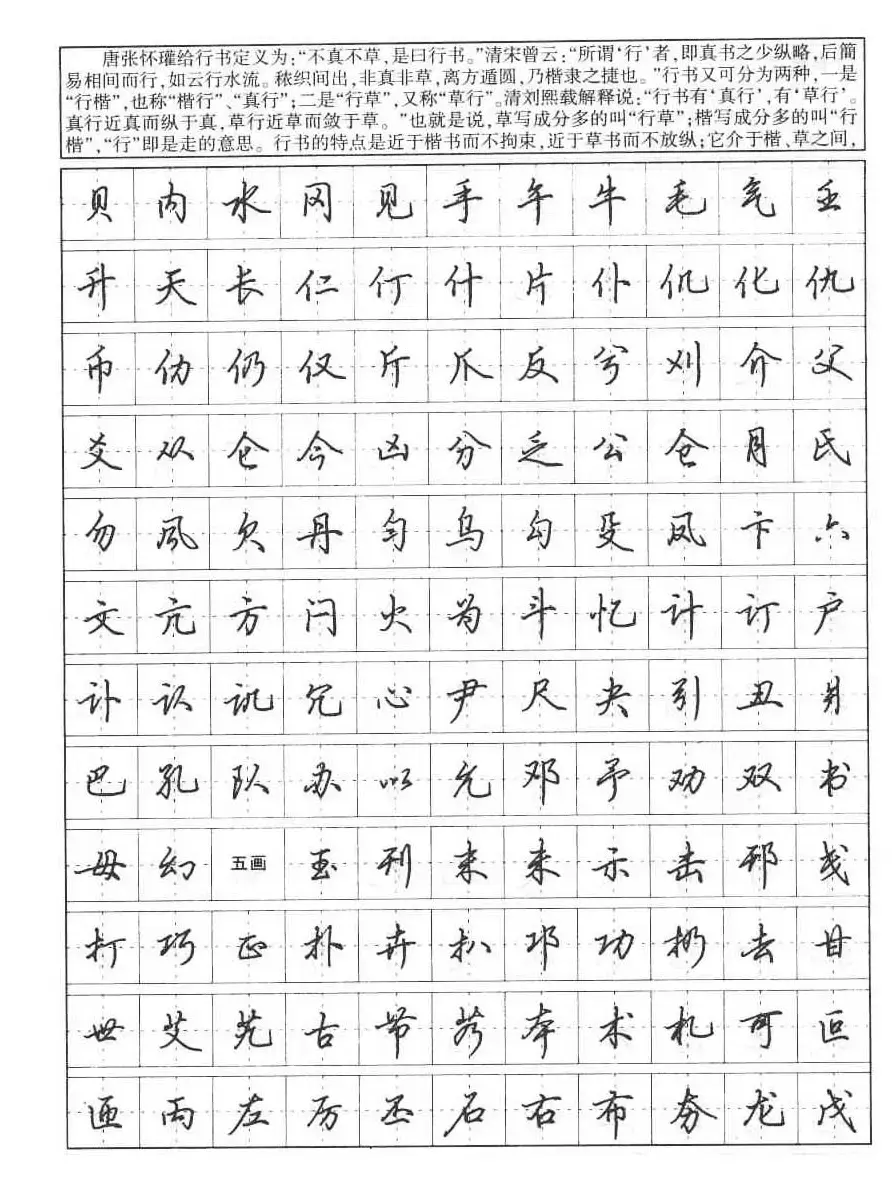 唐张怀瓘给行书定义为：“不真不草，是曰行书。”清宋曾云：“所谓‘行’者，即真书之少纵略，后簡
易相间而行，如云行水流。秾织间出，非真非草，离方遁圆，乃楷隶之捷也。”行书又可分为两种，一是
“行楷”，也称“楷行”、“真行”；二是“行草”，又称“草行”。清刘熙载解释说：“行书有‘真行’，有‘草行’。
真行近真而纵于真，草行近草而敛于草。”也就是说，草写成分多的叫“行草”；楷写成分多的叫“行
楷”，“行”即是走的意思。行书的特点是近于楷书而不拘束，近于草书而不放纵；它介于楷、草之间，
贝 内 水 冈 见 手 午 牛 毛 气 壬
升 天 长 仁 仃 什 片 仆 仉 化 仇
币 仂 仍 仅 斤 爪 反 兮 刈 介 父
爻 从 仑 今 凶 分 乏 公 仓 月 氏
勿 風 欠 丹 匀 乌 勾 殳 凤 卞 六
文 亢 方 闩 火 为 斗 忆 计 订 户
讣 认 讥 冗 心 尹 尺 夬 引 丑 爿
巴 孔 队 办 以 允 邓 予 劝 双 书
毋 幻 五画 玉 刊 末 未 示 击 邗 戋
打 巧 正 扑 卉 扒 邛 功 扔 去 甘
世 艾 艽 古 节 艿 本 术 札 可 叵
匝 丙 左 厉 丕 石 右 布 夯 龙 戊